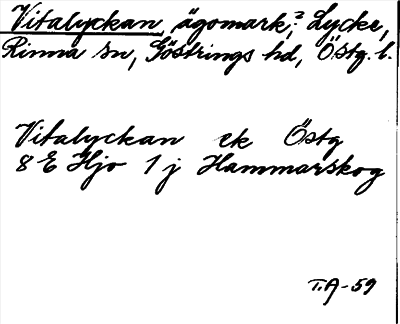 Vitalyckan, ägomark;? Lycke,
Rinna sn, Göstrings hd, Östg. l.
Vitalyckan ek Östg
8 E Hjo 1 j Hammarskog
T.A-59